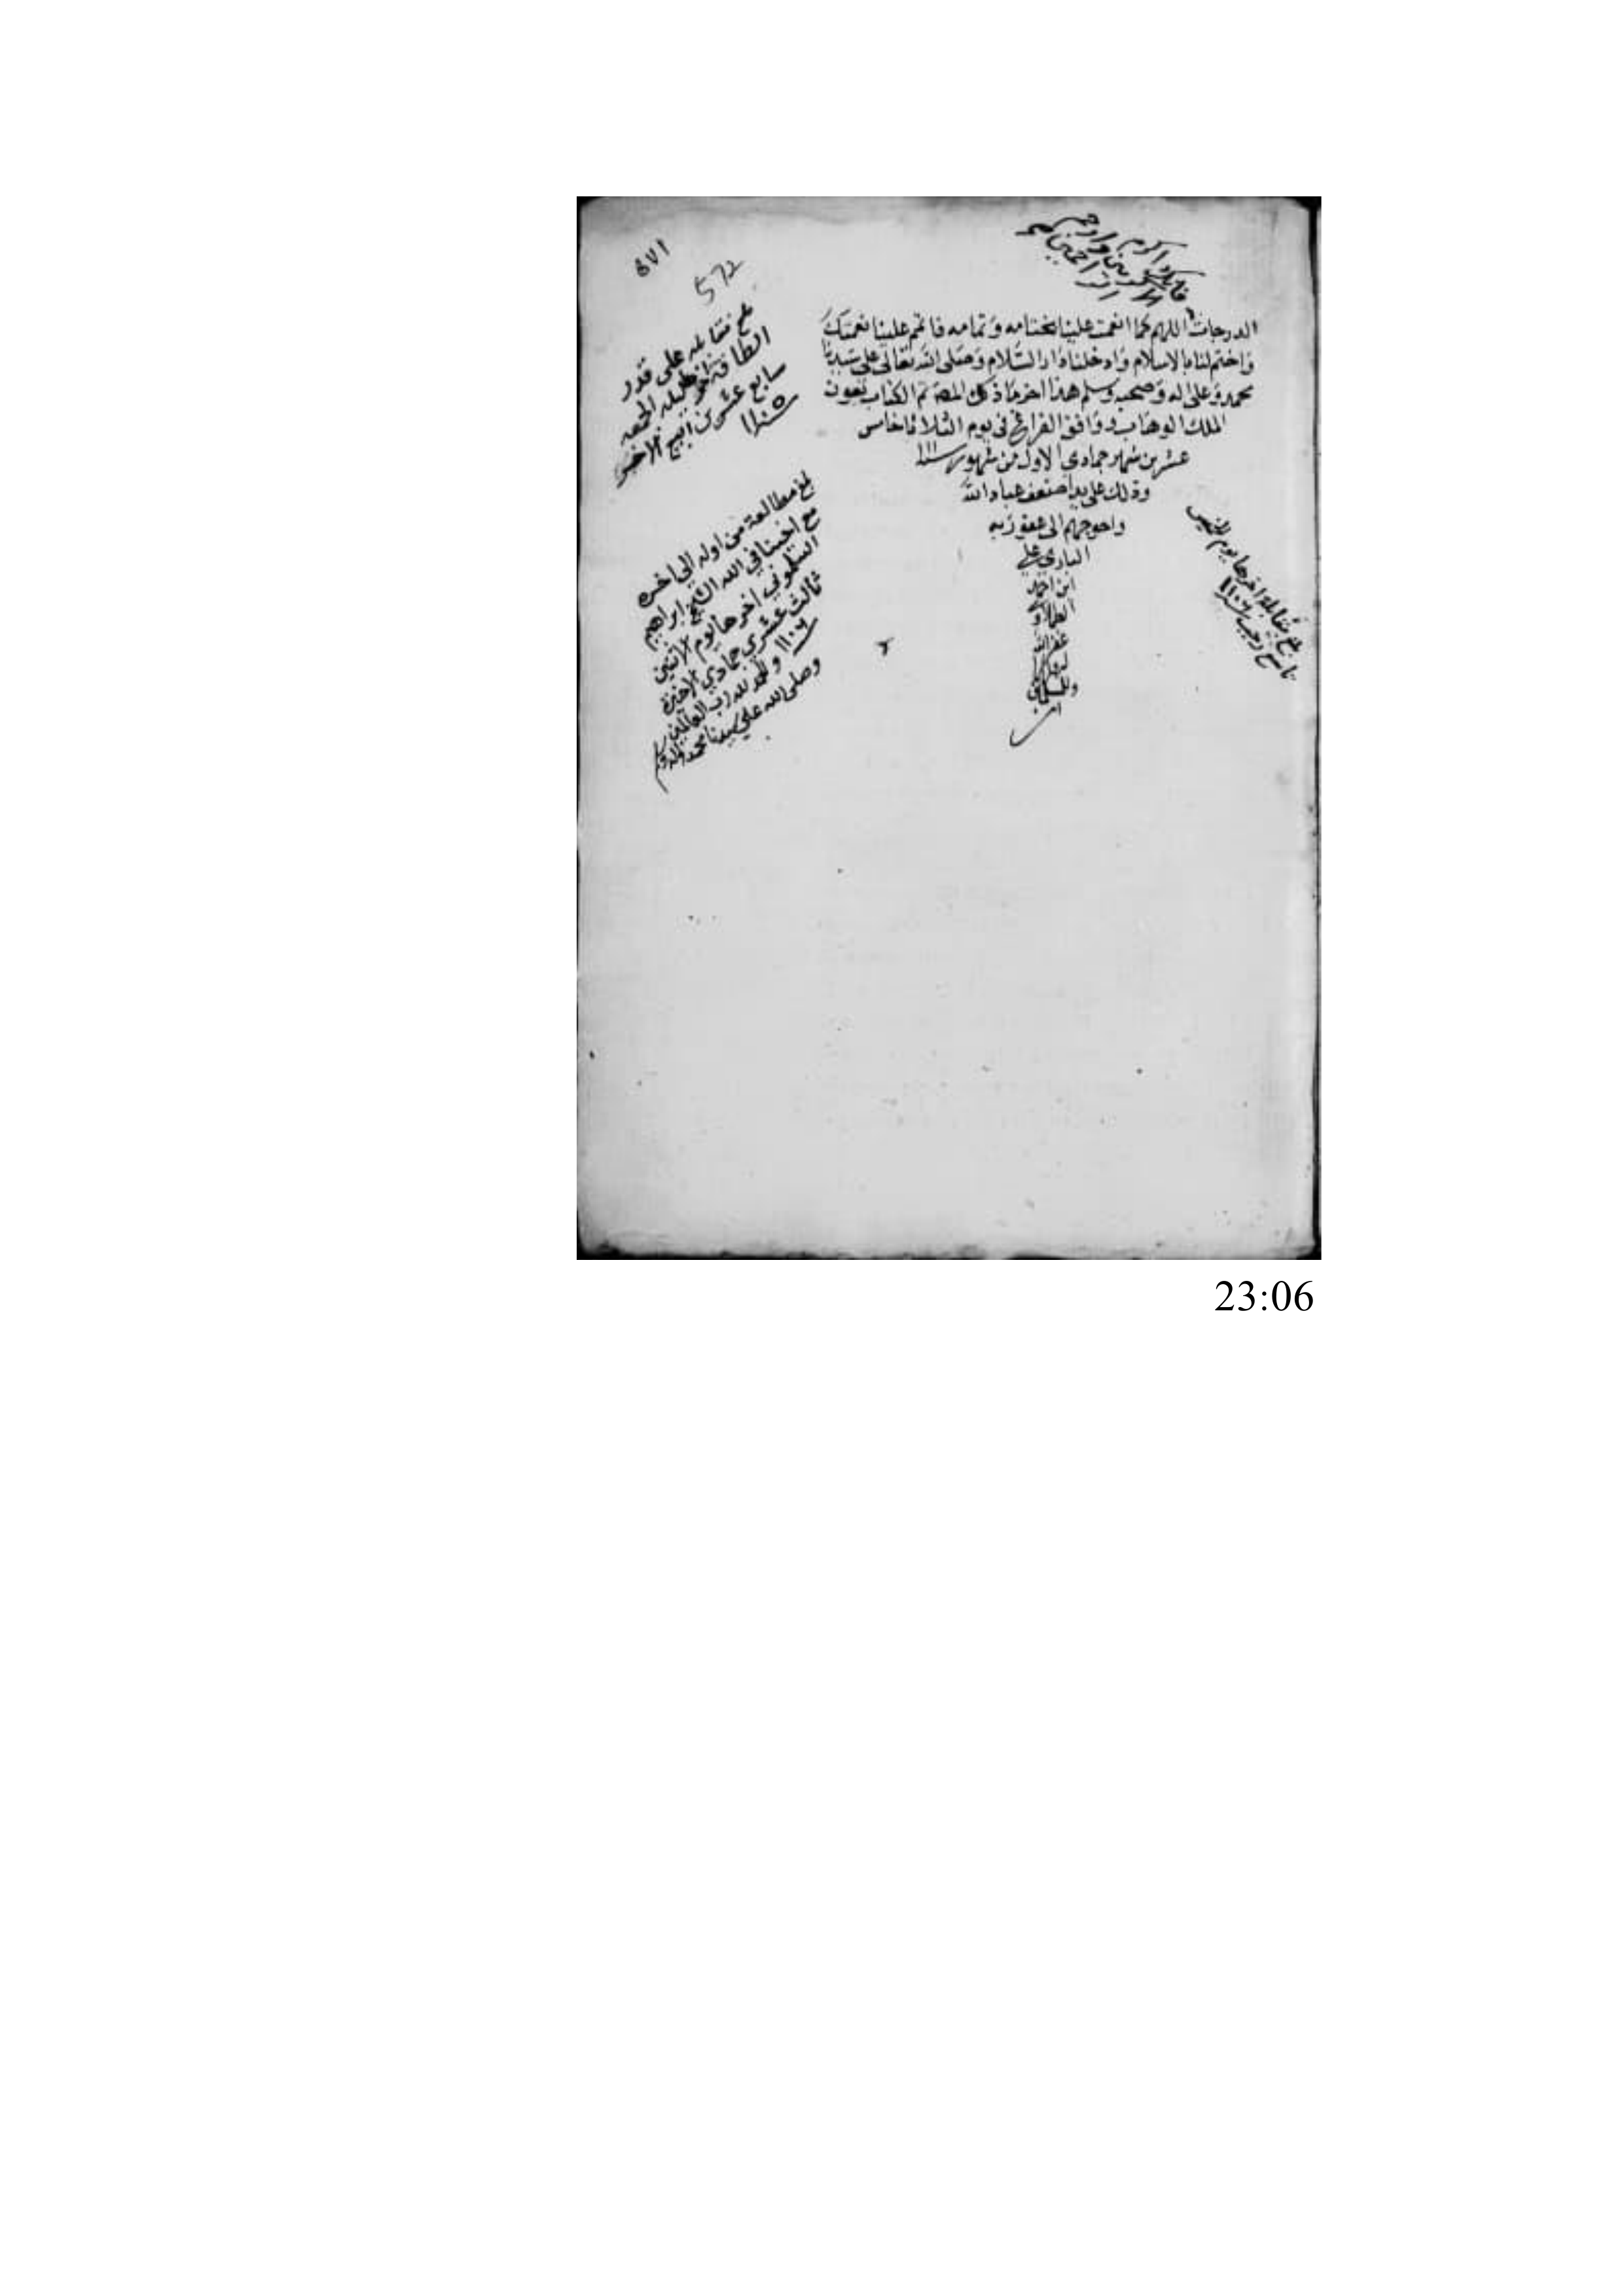 فانك اكرم
الاكرمين وارحم
الراحمين
الدرجات اللهم كما انعمت علينا بختامه وتمامه فاتمم علينا نعمتك
واختم لنا بالاسلام وادخلنا دار السلام وصلى الله تعالى على سيدنا
محمد وعلى اله وصحبه وسلم هذا اخر ما ذكره تم الكتاب بعون
الملك الوهاب ووافق الفراغ في يوم الثلاثا خامس
عشرين شهر جمادى الاول من شهور سنة
وذلك على يد اضعف عباد الله
واحوجهم الى عفو ربه
الباري علي
ابن احمد
غفر الله
له
وللمسلمين
امين
٥٧١
572
بلغ مقابلة على قدر
الطاقة اخره ليلة الجمعة
سابع عشرين ربيع الاخر
سنة ١١٠٥
بلغ مطالعة من اوله الى اخره
مع اخينا في الله الشيخ ابراهيم
اخرها يوم الاثنين
ثالث عشري جمادي الاخرة
سنة ١١٠٦ والحمد لله رب العالمين
وصلى الله على سيدنا محمد واله وسلم
بلغ مقابلة اخرها يوم الخميس
تاسع رجب سنة ١١٠٦
23:06